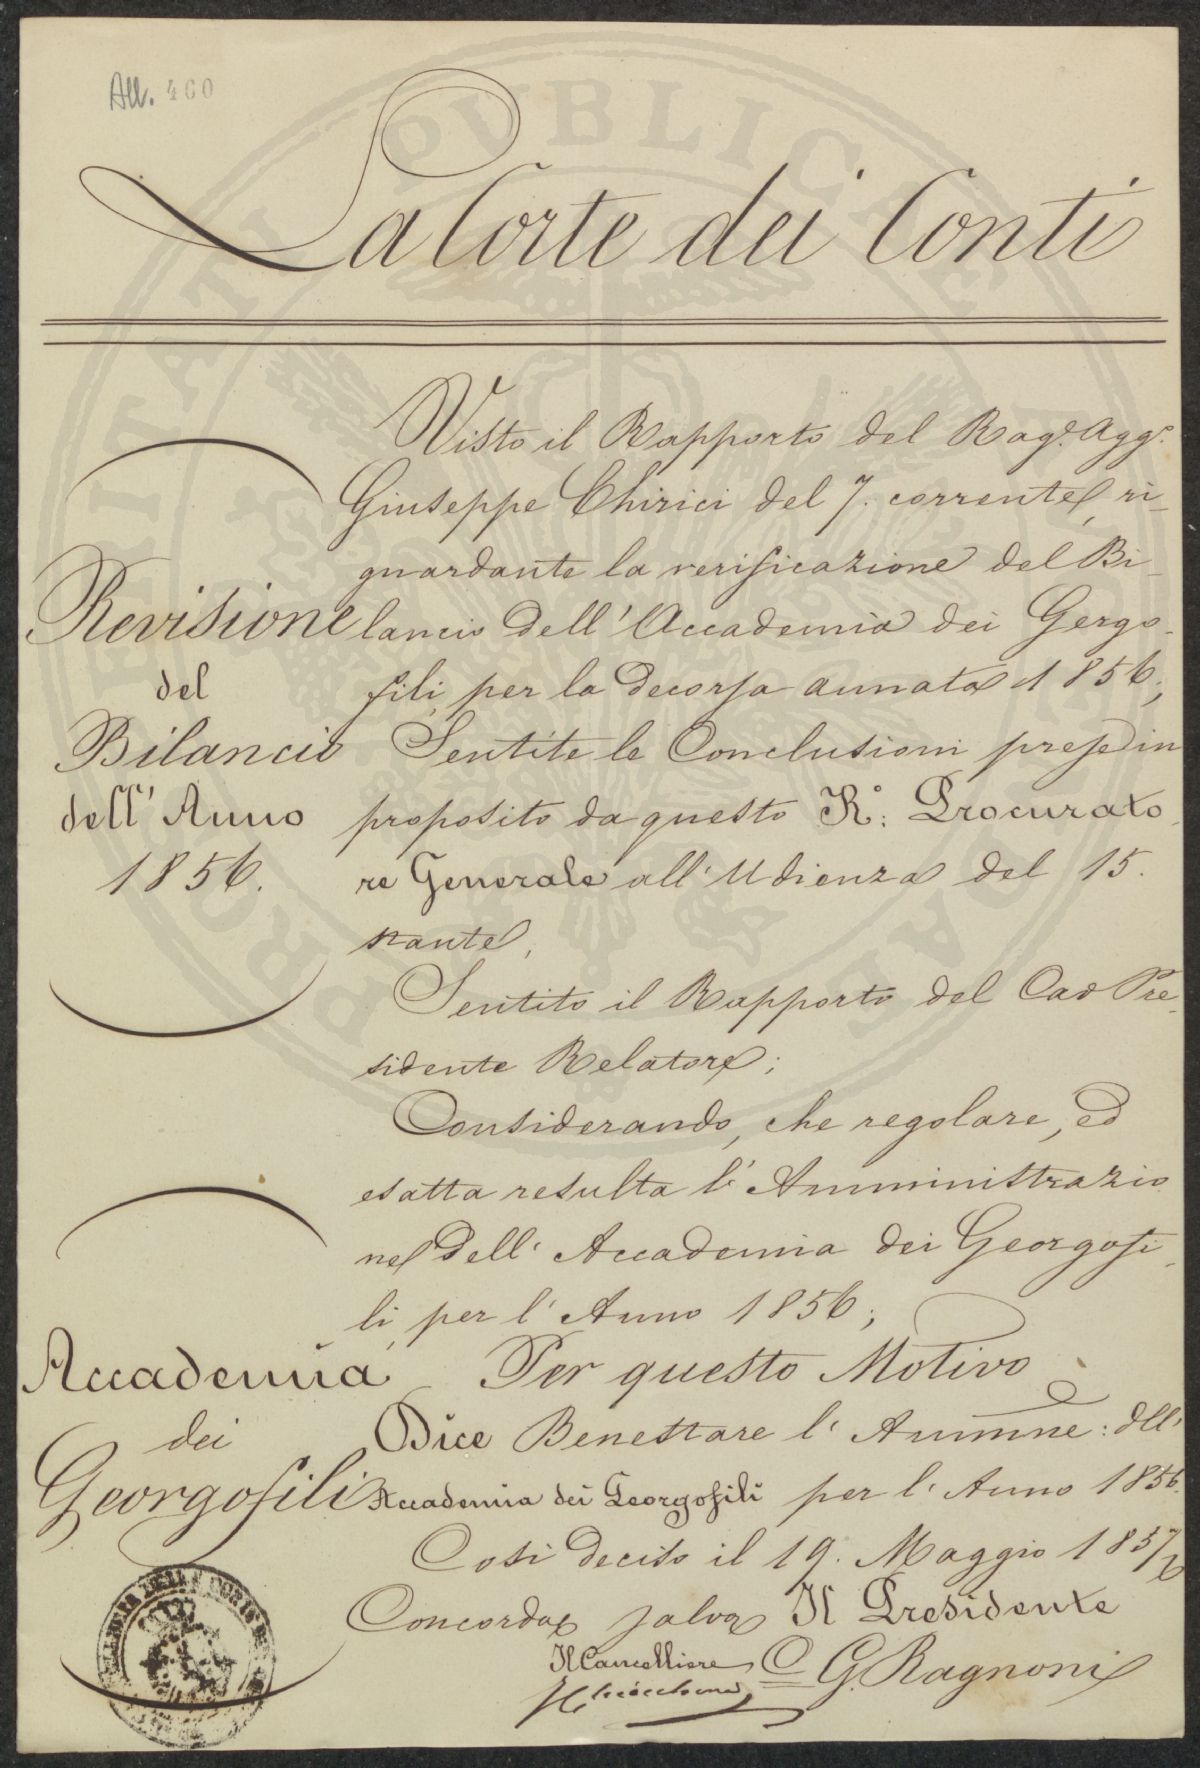 All. 460
La Corte dei Conti
Revisione
del
Bilancio
dell' Anno
1856.
Accademia
dei
Georgofili
Visto il Rapporto del Rag.e Agg.o
Giuseppe Chirici del 7. corrente, ri-
guardante la verificazione del Bi-
lancio dell' Accademia dei Gergo-
fili, per la decorsa annata 1856;
Sentite le Conclusioni prese in
proposito da questo R.o: Procurato-
re Generale all' Udienza del 15.
stante,
Sentito il Rapporto del Cav Pre-
sidente Relatore;
Considerando, che regolare, ed
esatta resulta l' Amministrazio
ne dell' Accademia dei Georgofi-
li, per l' Anno 1856;
Per questo Motivo
Dice Benestare l' Ammne: dell'
Accademia dei Georgofili per l' Anno 1856.
Così deciso il 19. Maggio 1857
Concorda salva Il Presidente
Il Cancelliere C G. Ragnoni